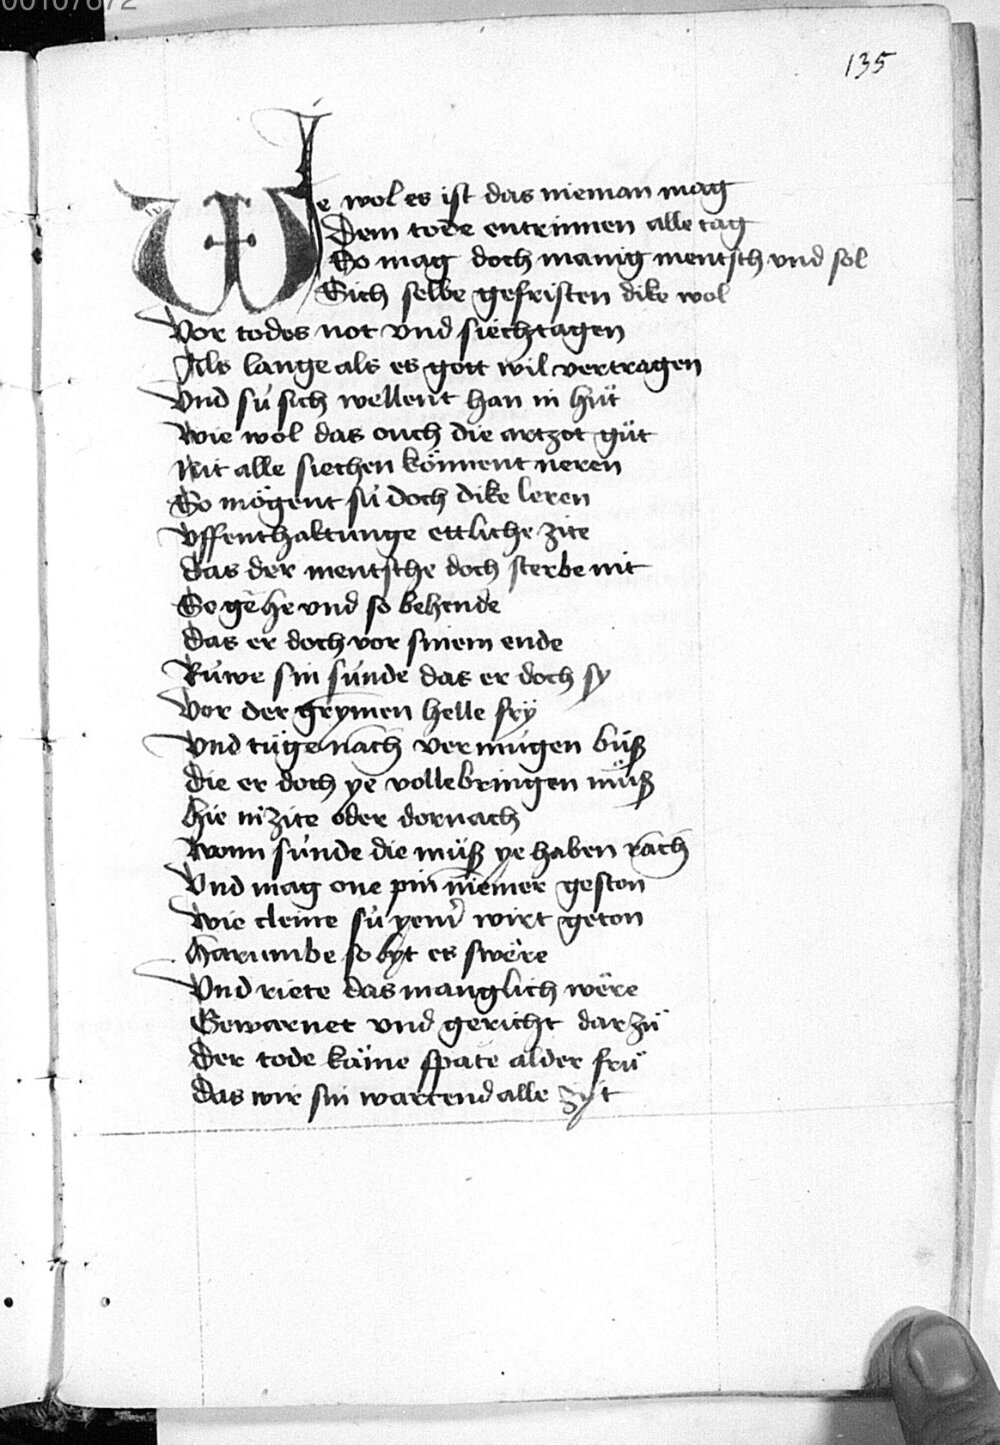 00107672
135
WJe wol es ist das nieman mag
Dem tode entrinnen alle tag
So mag doch manig mentsch vnd sol
Sich selbe gefristen dike wol
Vor todes not vnd siechtagen
Als lange als es gott wil vertragen
Vnd sú sich wellent han in hůt
Wie wol das ouch die artzot gůt
Nit alle siechen kónnent neren
So mógent sú doch dike leren
Vffenthaltunge ettliche zite
Das der mentsche doch sterbe nit
So gëhe vnd so behende
Das er doch vor sinem ende
Rúwe sin súnde das er doch sy
Vor der grymen helle fry
Vnd tüge nach vermúgen bůß
Die er doch ye vollebringen můß
Hie in zite oder dornach
Wonn súnde die můß ye haben rach
Vnd mag one pin niemer geston
Wie cleine sú yem̄ wirt geton
Harumbe so byt es swëre
Vnd riete das manglich wëre
Gewarnet vnd gericht dar zů
Der tode käme spate alder frů
Das wir sin wartend alle zyt